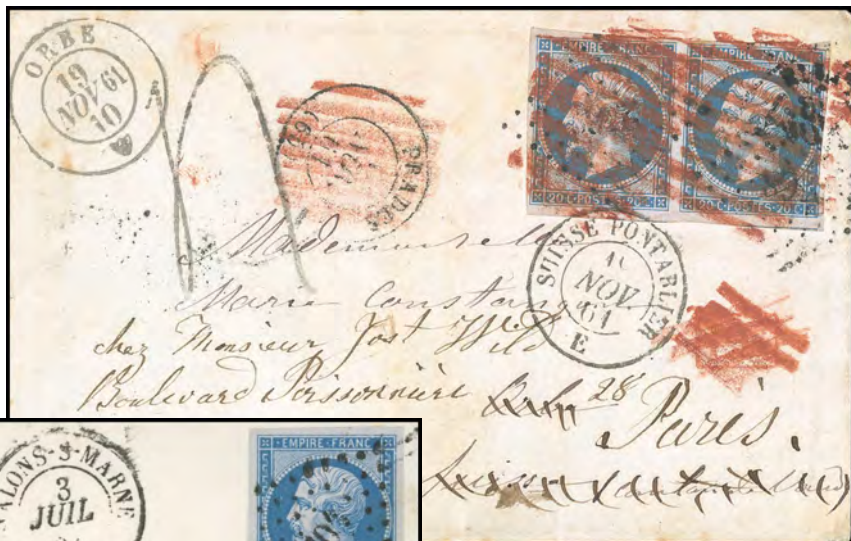 ORBE
19
NOV 61
10
PRADES
EMPIRE FRANC
EMPIRE FRANC
20 C POSTES 20 C
20 C POSTES 20 C
SUISSE PONTARLIER
NOV
61
E
Mademoiselle
Marie Constance
chez Monsieur Jost Wild
Boulevard Poissonnière 28
Paris.
ALONS-S-MARNE
3
JUIL
EMPIRE FRANC